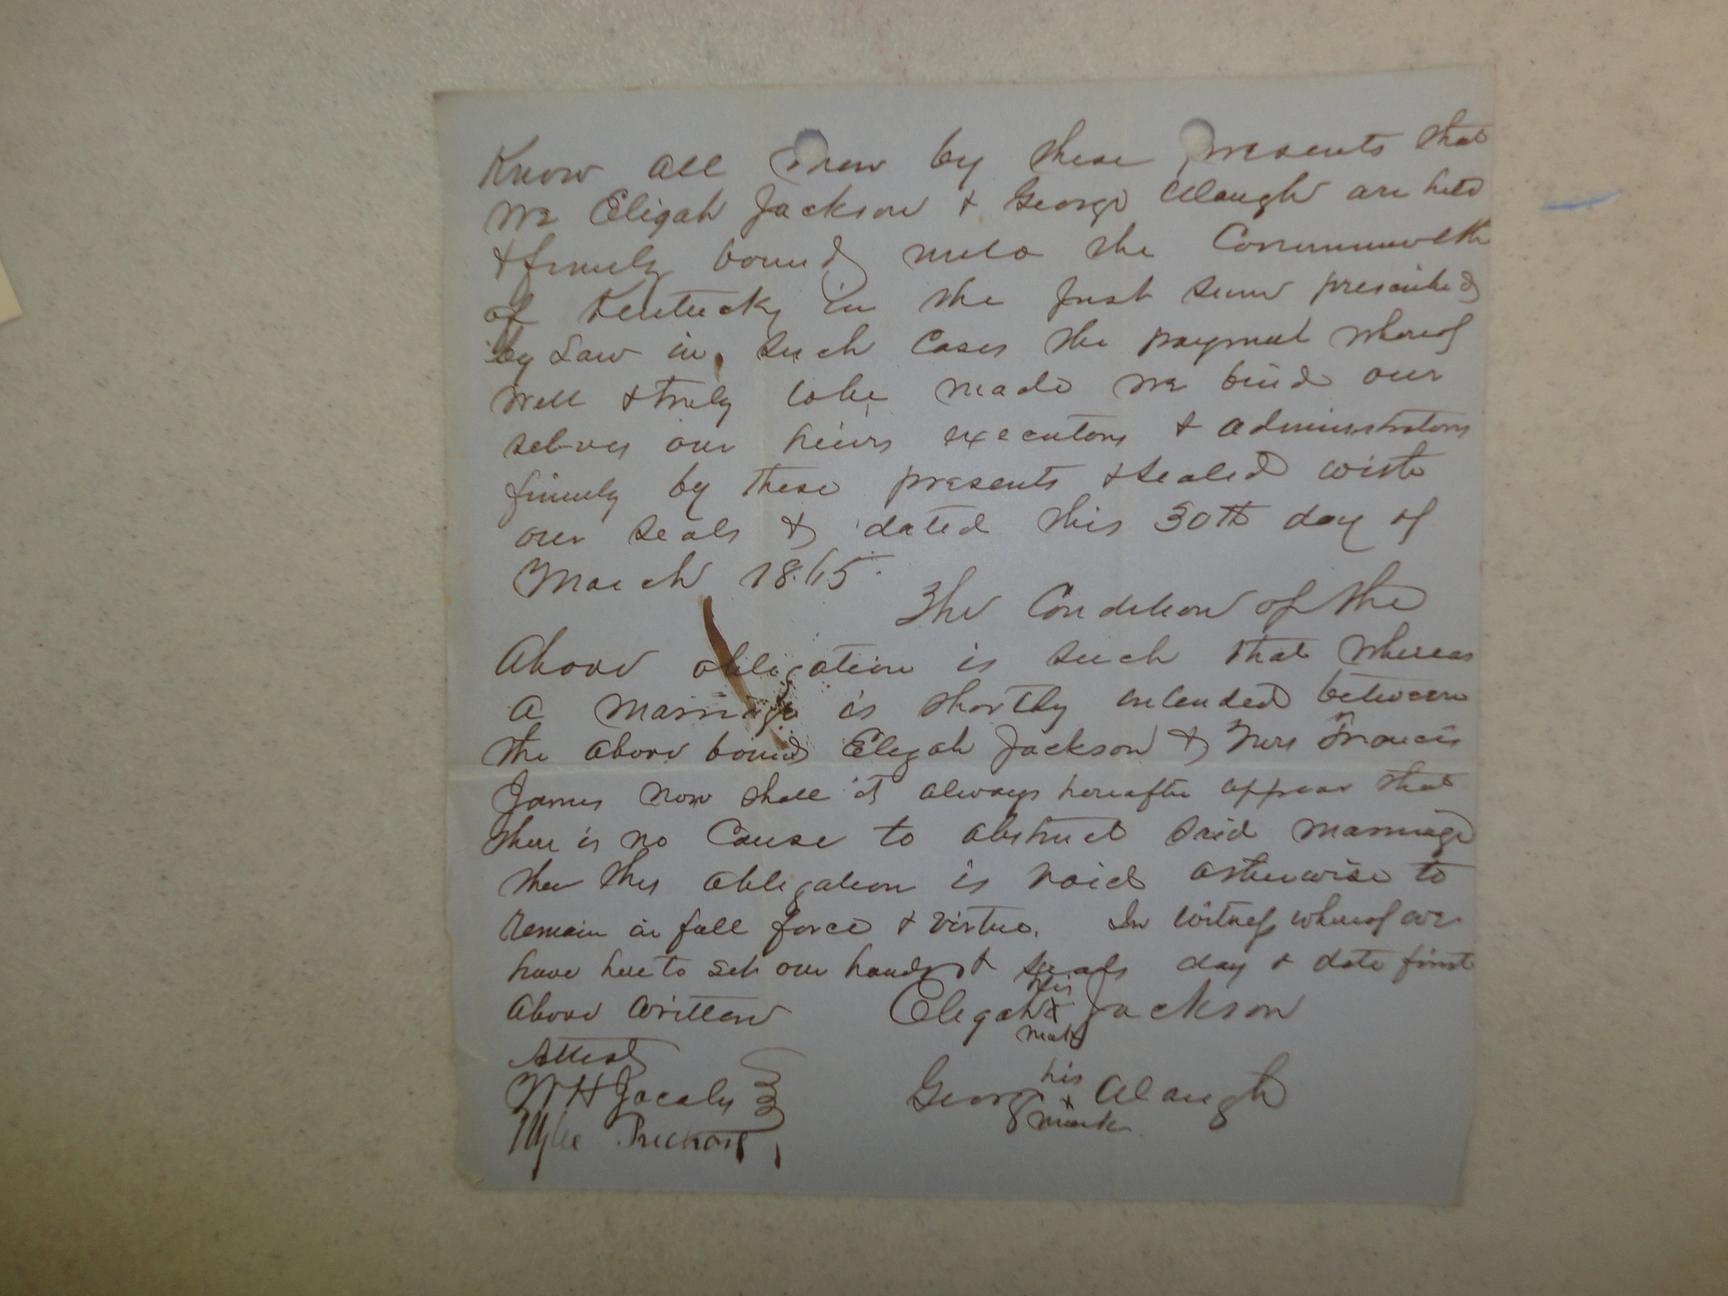 Know all men by these presents that
we Eligah Jackson & George Alaugh are held
& firmly bound unto the Commonwelth
of Kentucky in the Just sum prescribed
by Law in such Cases the payment whereof
Well & truly tobe made we bind our
selves our heirs executors & administrators
firmly by these presents & sealed with
our seals & dated this 30th day of
March 1865.
The Condition of the
Above obligation is such that whereas
a marriage is shortly intended between
the above bound Eligah Jackson & Mrs Francis
James now shall it always hereafter appear that
there is no Cause to abstruct said marriage
then this obligation is void otherwise to
remain in full force & virtue. In witness whereof we
have here to set our hands & seals day & date first
above written Eligah his x mark Jackson
Attest
W H Jacaby
George his x mark Alaugh